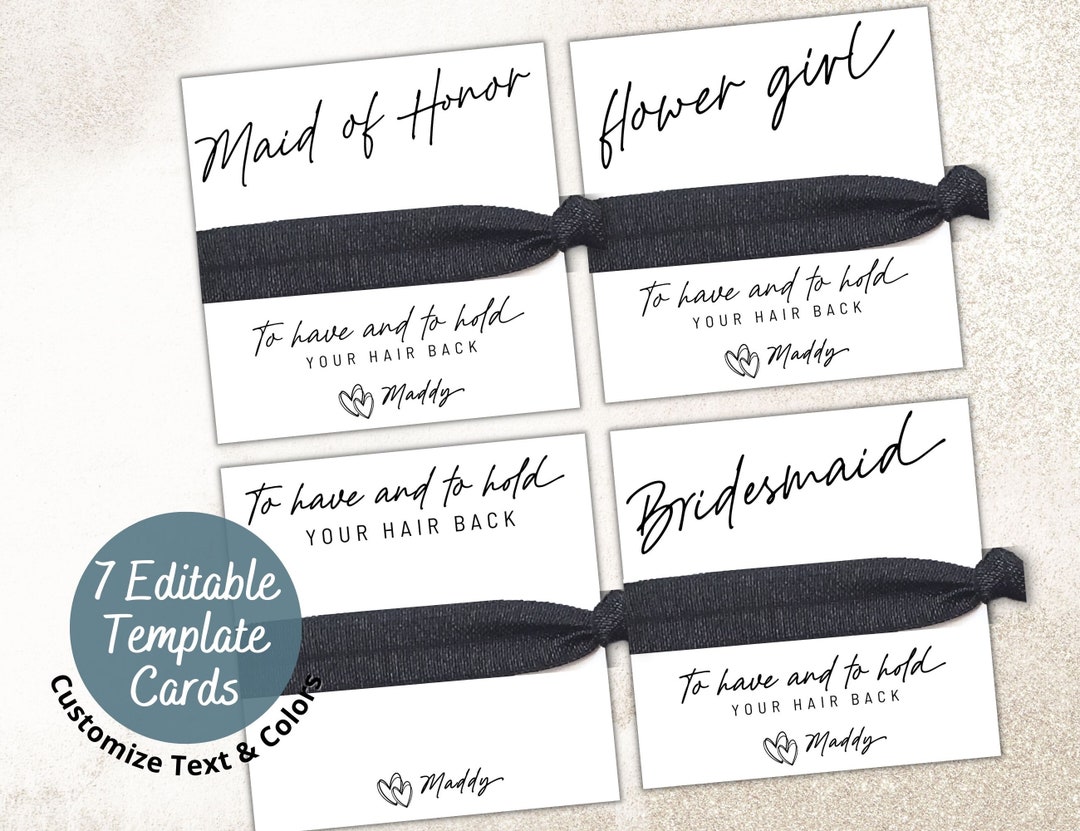 Maid of Honor
To have and to hold
YOUR HAIR BACK
Maddy
flower girl
To have and to hold
YOUR HAIR BACK
Maddy
To have and to hold
YOUR HAIR BACK
Maddy
Bridesmaid
To have and to hold
YOUR HAIR BACK
Maddy
7 Editable
Template
Cards
Customize Text & Colors